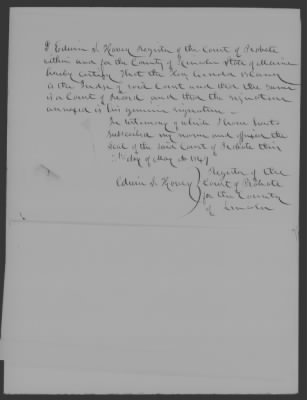 I Edwin S. Hovey Register of the Court of Probate
within and for the County of Lincoln State of Maine
hereby certify that the
is the Judge of said Court and that the same
is a Court of Record and that the signature
annexed is his genuine signature.
In testimony of which I have hereto
subscribed my name and affixed the
seal of the said Court of Probate this
day of May
Edwin S. Hovey
Register of the
Court of Probate
for the County
of Lincoln